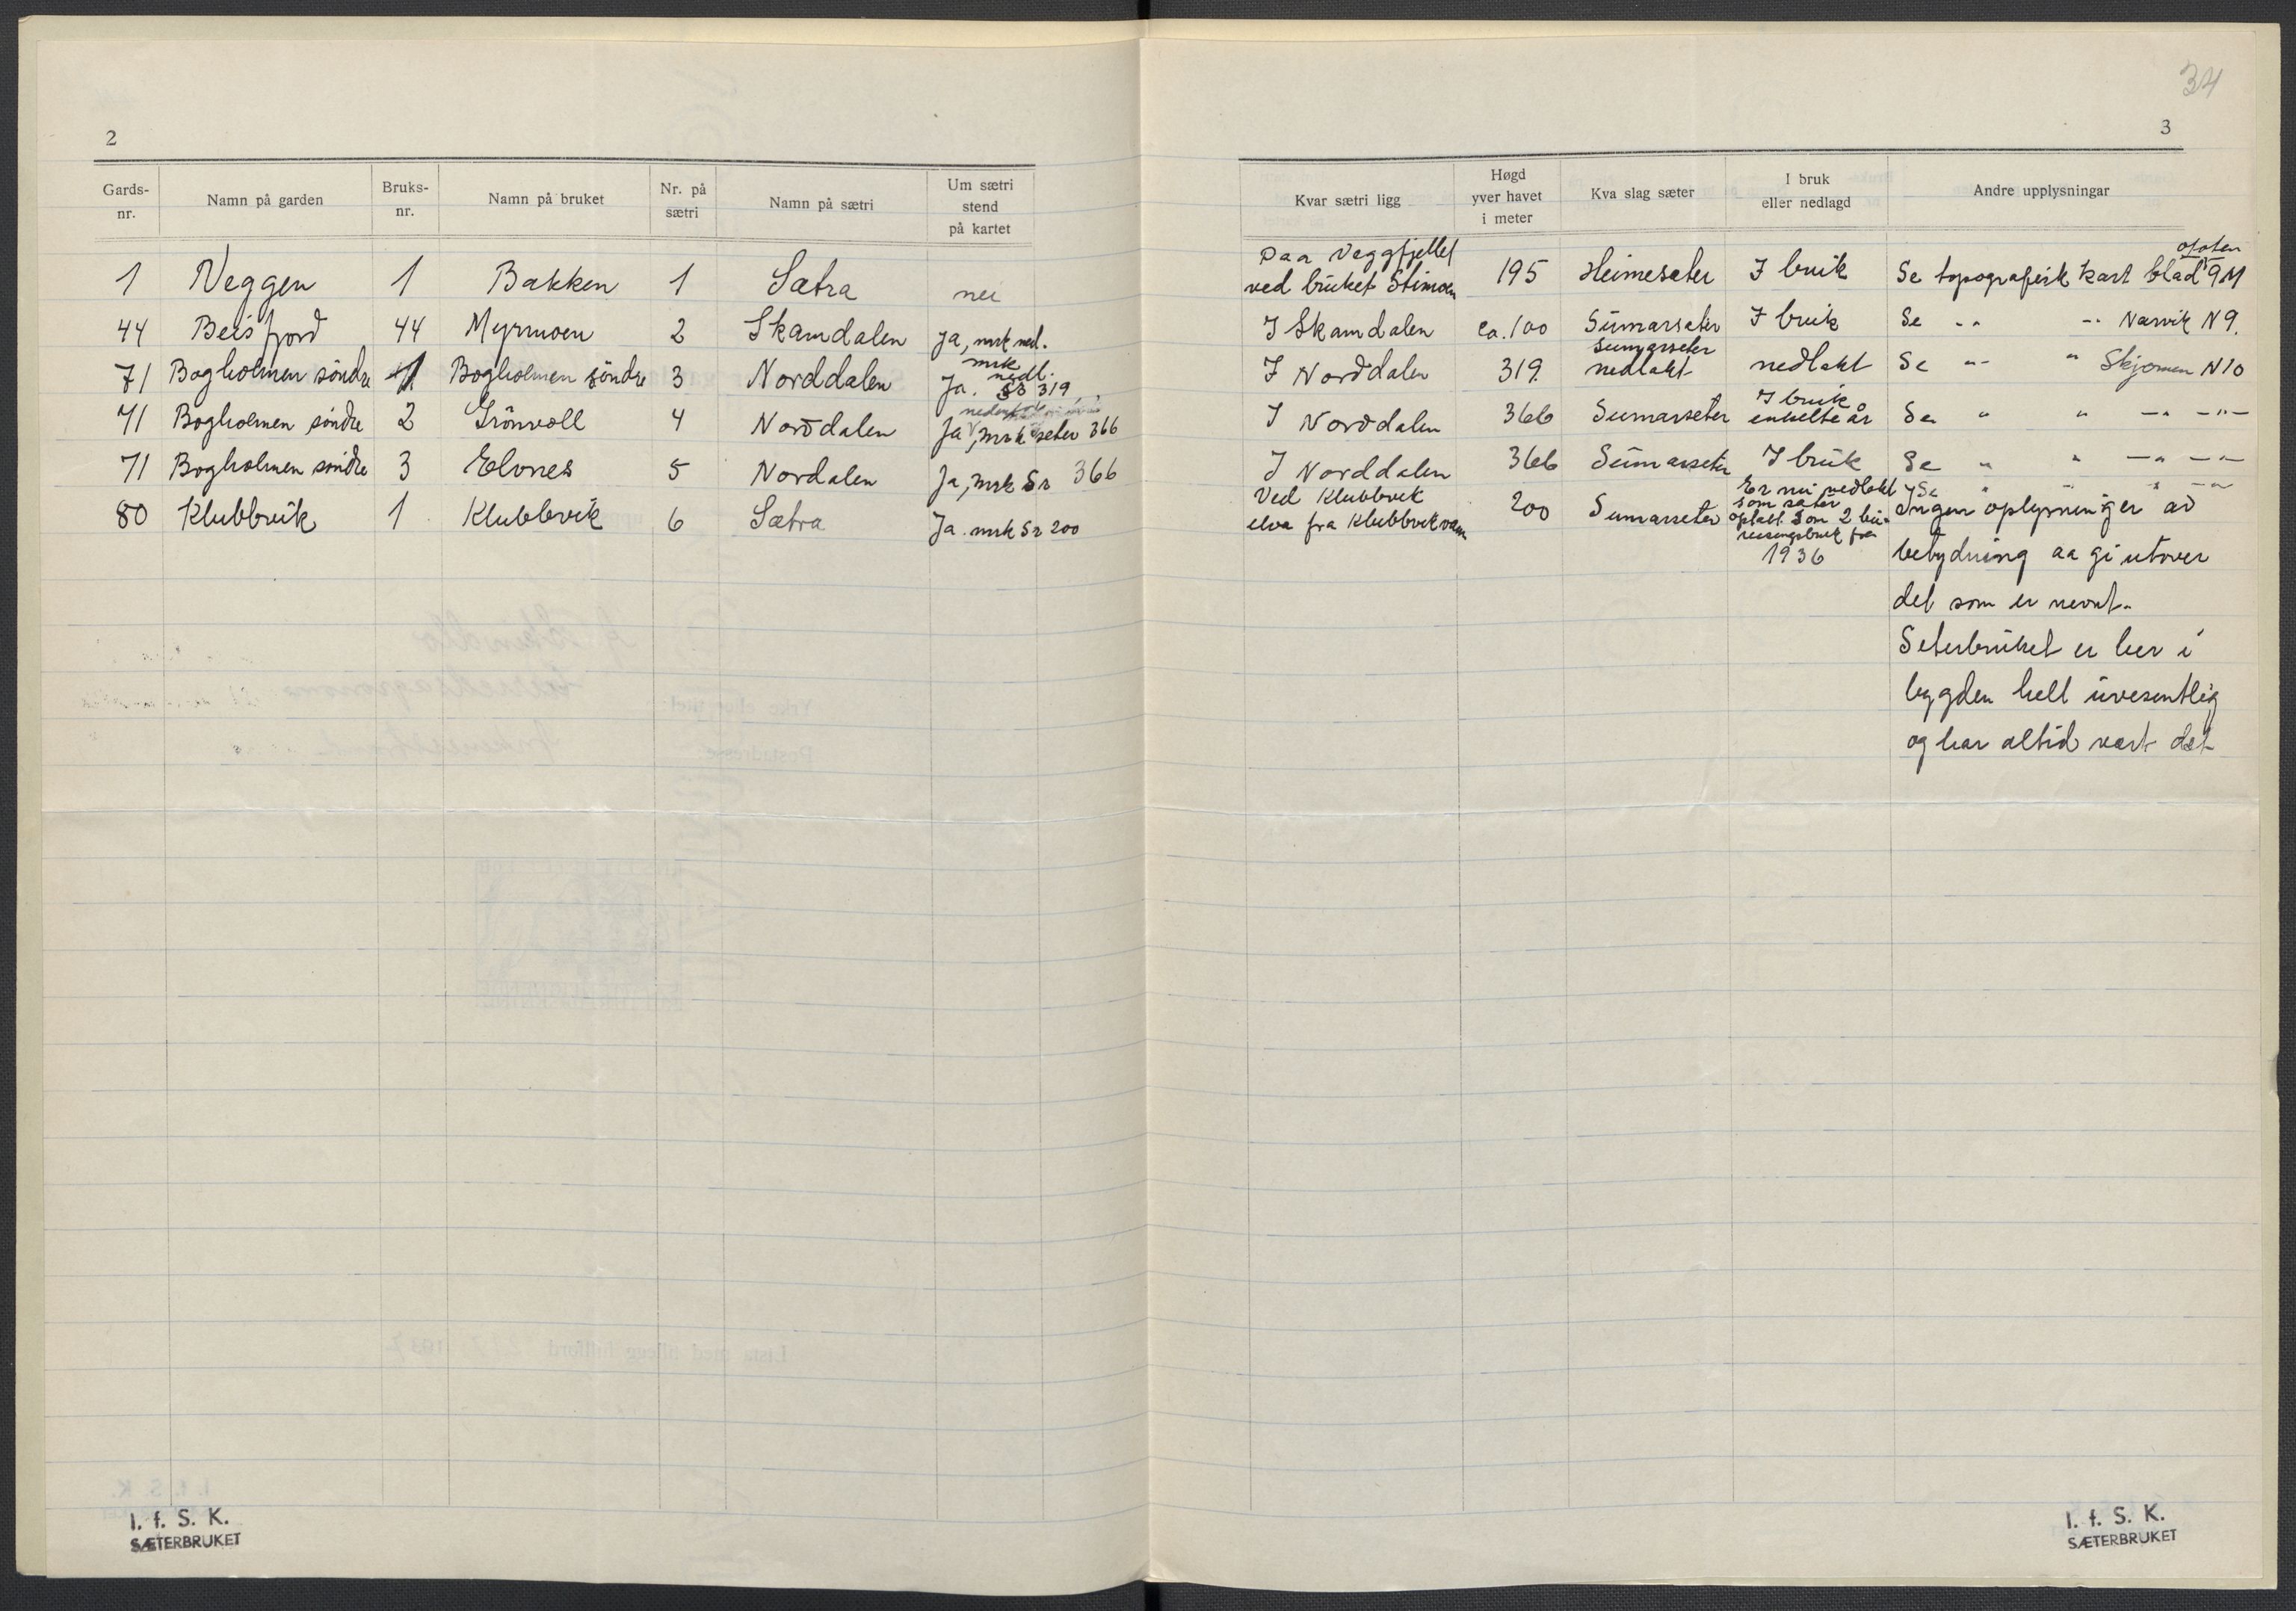 34
2
3
Gards-nr. Namn på garden Bruks-nr. Namn på bruket Nr. på sætri Namn på sætri Um sætri stend på kartet
Kvar sætri ligg Høgd yver havet i meter Kva slag sæter I bruk eller nedlagd Andre upplysningar
1 Veggen 1 Bakken 1 Sætra nei
Paa Veggfjellet ved bruket Stimoen 195 Heimesæter I bruk Se topografisk kart blad Ofoten 9M
44 Beisfjord 44 Myrmoen 2 Skamdalen Ja, mrk ned.
I Skamdalen ca. 100 Sumarsæter I bruk Se -"- -"- Narvik N9.
71 Bogholmen söndre 1 Bogholmen söndre 3 Norddalen Ja. mrk nedl. Sr 319
I Norddalen 319. Sumarseter nedlakt nedlakt Se -"- " Skjomen N10
71 Bogholmen söndre 2 Grönvoll 4 Norddalen Ja, mrk seter 366
I Norddalen 366 Sumarseter I bruk enkelte år Se " " -"- -"-
71 Bogholmen söndre 3 Elvnes 5 Nordalen Ja, mrk Sr 366
I Norddalen 366 Sumarseter I bruk Se " " -"- -"-
80 Klubbvik 1 Klubbvik 6 Sætra Ja. mrk Sr 200
Ved Klubbvik elva fra Klubbvikvann 200 Sumarseter Er nu nedlakt som sæter som 2 bureisingsbruk fra 1936 Se " " " -"-
Ingen oplysninger av
betydning aa gi utover
det som er nevnt.
Seterbruket er her i
bygden helt uvesentlig
og har altid vært det
I. f. S. K.
SÆTERBRUKET
I. f. S. K.
SÆTERBRUKET